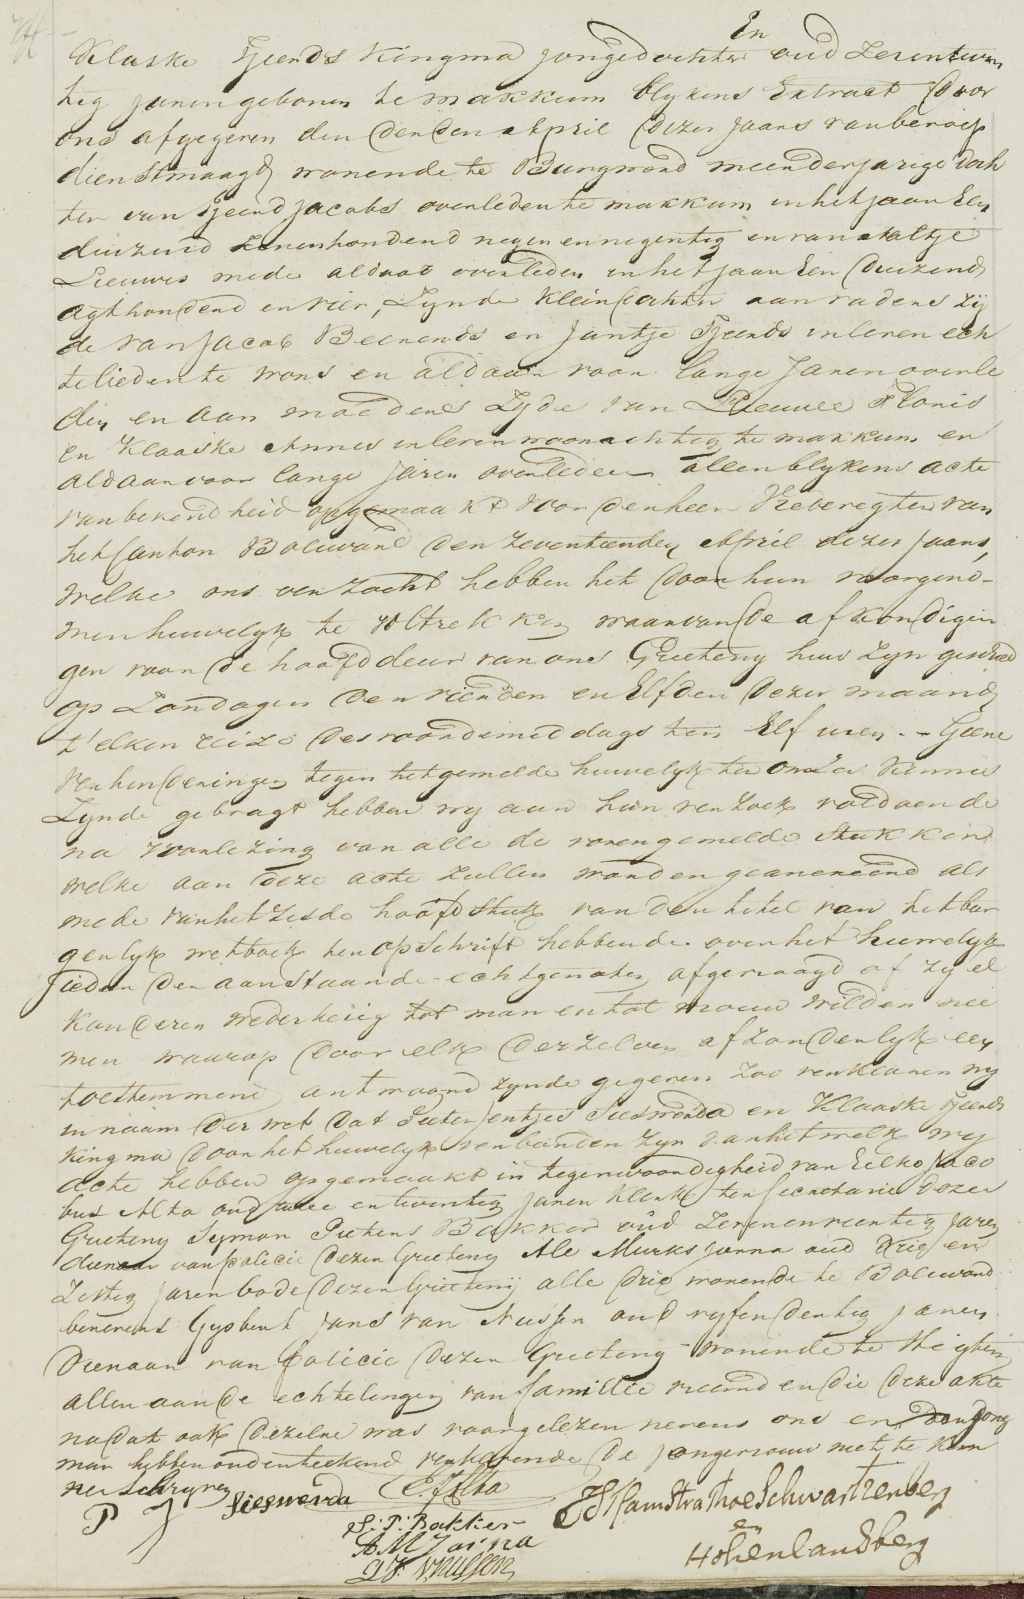 En
Klaske Tjeerds Kingma jongedochter oud zeventwin
tig jaren geboren te makkum blykens Extract door
ons afgegeven den derden April dezer jaars van beroep
dienstmaagd wonende te Burgwerd meerderjarige doch
ter van Tjeerd Jacobs overleden te makkum in het jaar Een
duizend zevenhonderd negen en negentig en van Aaltje
Lieuwes mede aldaar overleden in het jaar Een duizend
agthonderd en vier, zynde Kleindochter aan vaders zij
de van Jacob Beerends en Jantje Tjeerds in leven ech
telieden te wons en aldaar voor lange Jaren overle
den en aan moeders zyde van Lieuwe Floris
en Klaaske Annes in leven woonachtig te makkum en
aldaar voor lange jaren overleden alles blykens acte
van bekendheid opgemaakt voor den heer Vrederegter van
het Canton Bolsward den zeventienden April dezer jaars,
welke ons verzocht hebben het door hun voorgeno-
men huwelyk te voltrekken waarvan de afkondigin
gen voor de hoofddeur van ons Grieteny huis zyn geschied
op Zondagen den vierden en Elfden dezer maand
t'elken reize des voordemiddags ten Elf uren. - Geene
verhinderingen tegen het gemelde huwelyk ter onzer kennis
zynde gebragt hebben wy aan hun verzoek voldoende
na voorlezing van alle de vorengemelde stukken
welke aan deze acte zullen worden geannexeerd als
mede van het zesde hoofdstuk van den titel van het bur
gerlyk wetboek ten opschrift hebbende over het huwelyk
ieder der aanstaande echtgenoten afgevraagd of zy el
kanderen wederkeerig tot man en tot vrouw wilden nee
men waarop door elk derzelven afzonderlyk een
toestemmend antwoord zynde gegeven zoo verklaren wy
in naam der wet dat Pieter Jentjes Sieswerda en Klaaske Tjeerds
Kingma door het huwelyk verbonden zyn van het welk wy
acte hebben opgemaakt in tegenwoordigheid van Eelko Jaco
bus Alta oud twee en twintig jaren klerk ter secretarie dezer
Grieteny Symon Pieters Bakker oud zevenenveertig jaren
dienaar van policie dezer Grieteny Ale Murks Jorna oud drie en
zestig jaren bode dezer Grietenij alle drie wonende te Bolsward
benevens Gysbert Jans van Nussen oud vyfendertig jaren
Dienaar van policie dezer Grieteny wonende te
allen aan de echtelingen van familie vreemd en die deze akte
nadat ook dezelve was voorgelezen nevens ons en den jong
man hebben onderteekend verklarende de jongevrouw niet te kun
nen schryven
P J Sieswerda E. J. Alta
S: P: Bakker
A M Jorna
G J. v. nussen
thoe Schwartzenberg
en
Hohenlansberg